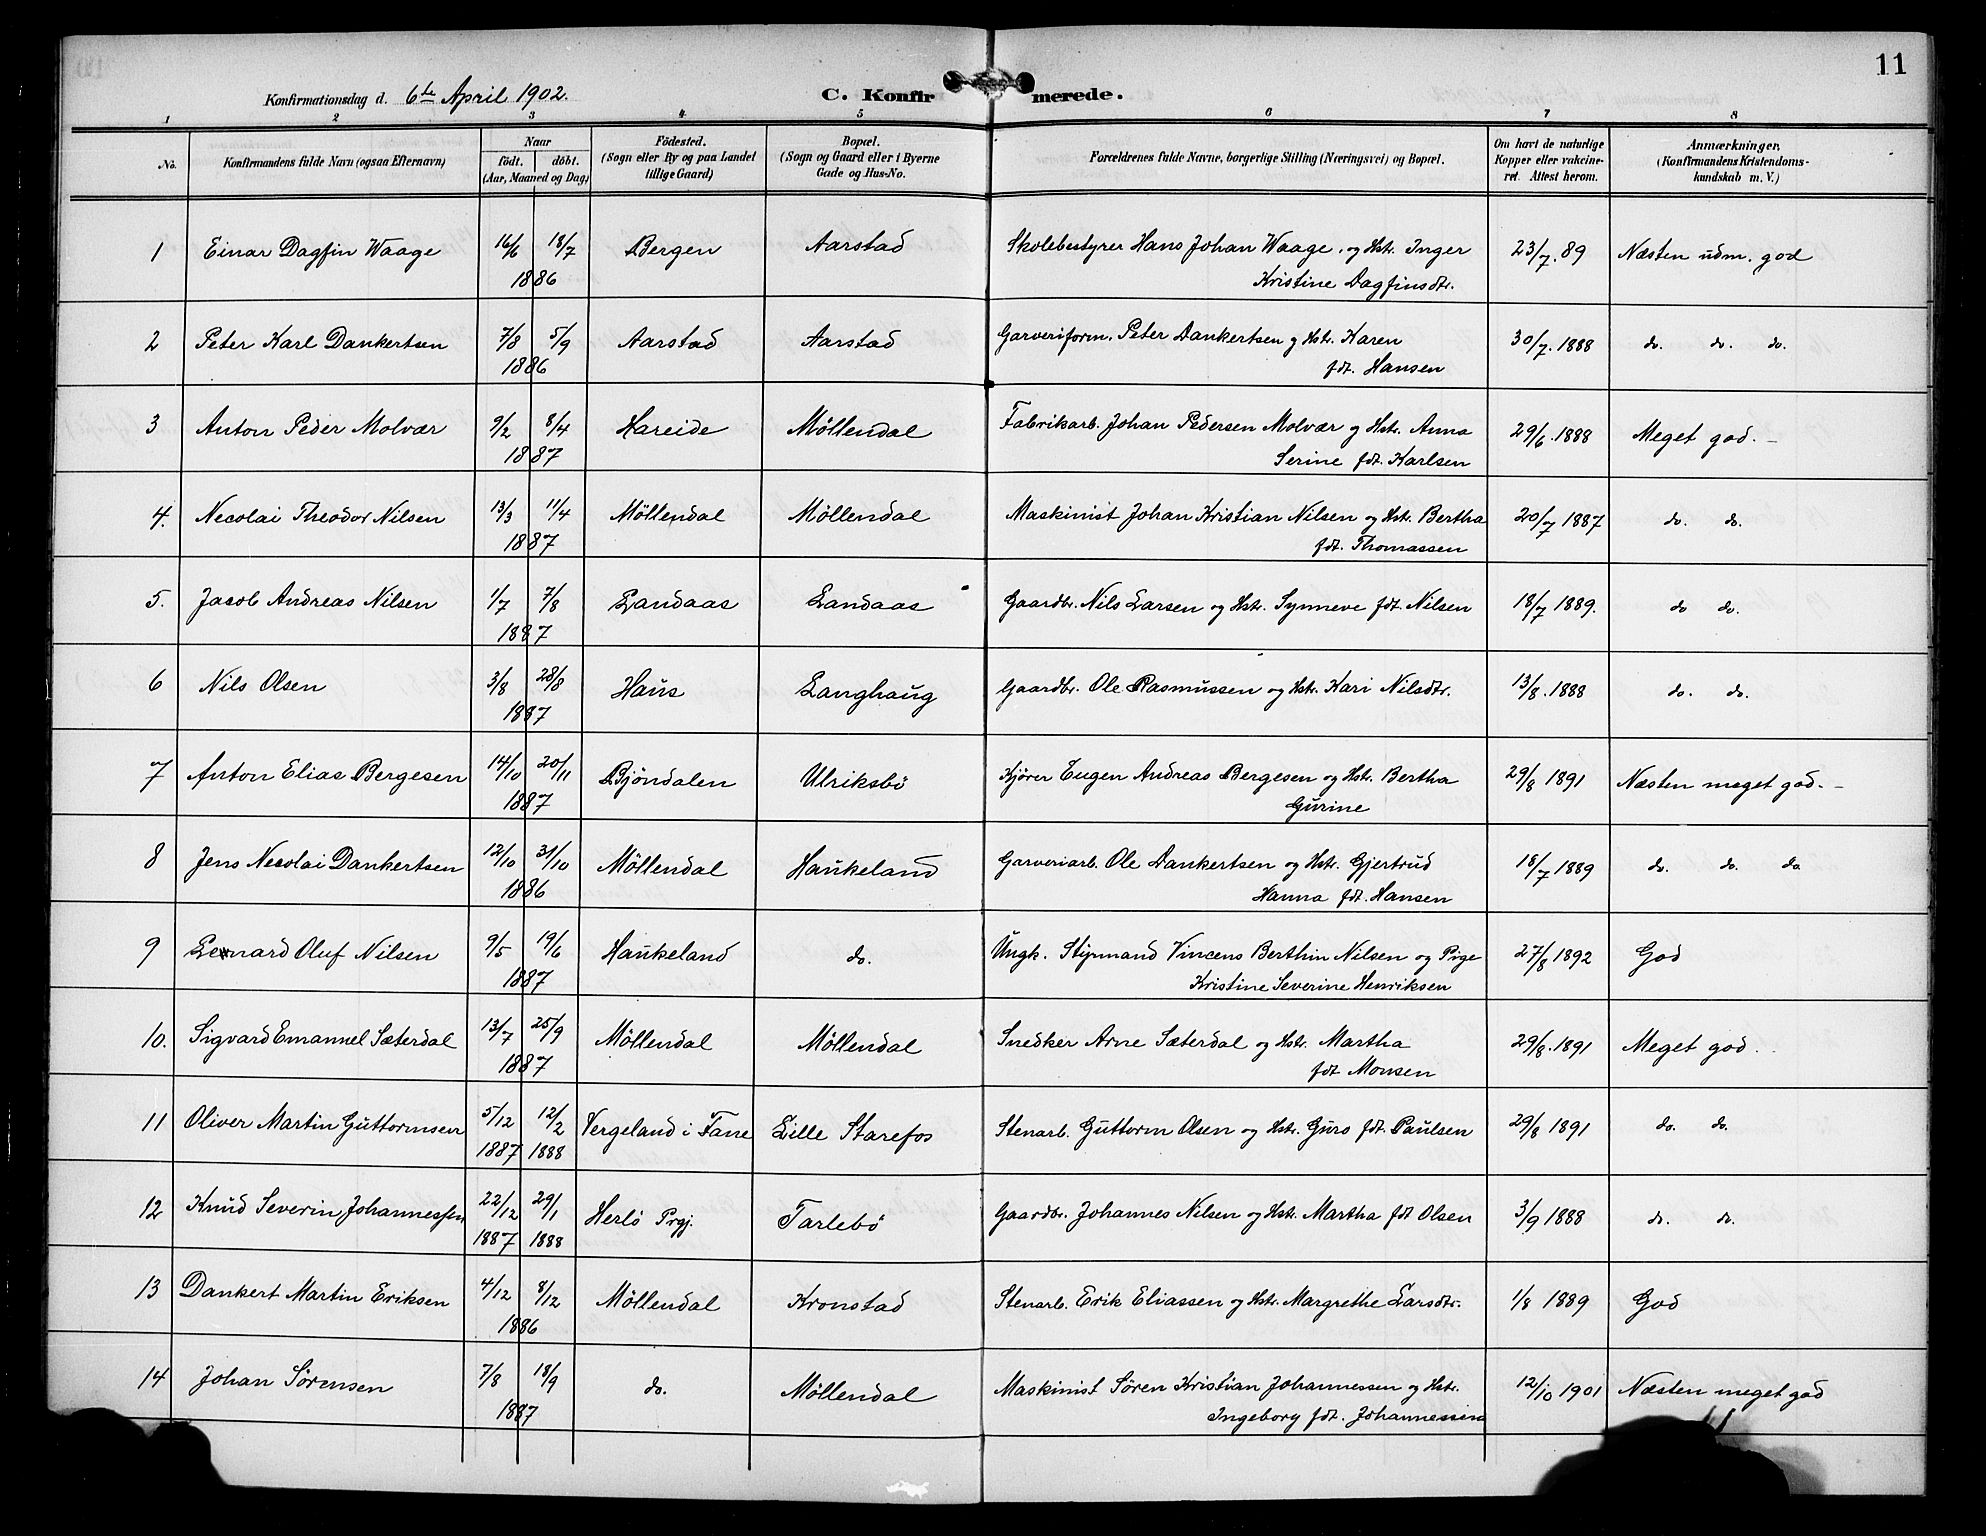 11
Konfirmationsdag d. 6te April 1902. C. Konfirmerede.
1 2 3 4 5 6 7 8
No. Konfirmandens fulde Navn (ogsaa Efternavn) Naar födt. döbt. (Aar, Maaned og Dag) Födested. (Sogn eller By og paa Landet tillige Gaard) Bopæl. (Sogn og Gaard eller i Byerne Gade og Hus-No. Forældrenes fulde Navne, borgerlige Stilling (Næringsvei) og Bopæl. Om havt de naturlige Kopper eller vakcineret. Attest herom. Anmærkninger. (Konfirmandens Kristendomskundskab m. V.)
1 Einar Dagfin Waage 16/6 18/7 Bergen Aarstad Skolebestyrer Hans Johan Waage. og Hstr. Inger 23/7. 89 Næsten udm. god
1886 Kristine Dagfinsdtr.
2 Peter Karl Dankertsen 7/8 5/9 Aarstad Aarstad Garveriform. Peter Dankertsen g Hstr. Karen 30/7. 1888 do. do. do.
1886 fdt. Hansen
3 Anton Peder Molvær 9/2 8/4 Hareide Möllendal Fabrikarb. Johan Pedersen Molvær g Hstr. Anna 29/6. 1888 Meget god. -
1887 Serine fdt. Karlsen
4. Necolai Theodor Nilsen 13/3 11/4 Möllendal Möllendal Maskinist Johan Kristian Nilsen og Hstr. Bertha 20/7 1887 do. do.
1887 fdt. Thomassen
5. Jacob Andreas Nilsen 1/7 7/8 Landaas Landaas Gaardbr. Nils Larsen og Hstr. Synneve fdt. Nilsen 18/7 1889. do do.
1887
6 Nils Olsen 3/8 28/8 Haus Langhaug Gaardbr. Ole Rasmussen og Hstr. Kari Nilsdtr. 13/8. 1888 do. do.
1887
7 Anton Elias Bergesen 14/10 20/11 Bjöndalen Ulriksbö Kjører Eugen Andreas Bergesen og Hstr. Bertha 29/8 1891 Næsten meget god. -
1887 Gurine
8 Jens Necolai Dankertsen 12/10 31/10 Möllendal Haukeland Garveriarb. Ole Dankertsen og Hstr. Gjertrud 18/7 1889 do. do. do
1886 Hanna fdt. Hansen
9 Leonard Oluf Nilsen 9/5 19/6 Haukeland do. Ungk. Styrmand Vincens Berthin Nilsen og Pige 27/8 1892 God
1887 Kristine Severine Henriksen
10. Sigvard Emannel Sæterdal 13/7 25/9 Möllendal Möllendal Snedker Arne Sæterdal og Hstr. Martha 29/8. 1891 Meget god.
1887 fdt Monsen
11 Oliver Martin Guttormsen 5/12 12/2 Vergeland i Fane Lille Starefos Stenarb. Guttorm Olsen og Hstr. Guro fdt. Paulsen 29/8 1891 do. do.
1887 1888
12 Knud Severin Johannessen 22/12 29/1 Herlö Prgj. Tarlebö Gaardbr. Johannes Nilsen og Hstr. Martha fdt Olsen 3/9 1888 do. do.
1887 1888
13 Dankert Martin Eriksen 4/12 8/12 Möllendal Kronstad Stenarb. Erik Eliassen og Hstr. Margrethe Larsdtr. 1/8 1889 God
1886
14 Johan Sörensen 7/8 18/9 do. Möllendal Maskinist Sören Kristian Johannessen og Hstr. 12/10 1901 Næsten meget god
1887 Ingeborg fdt. Johannessen